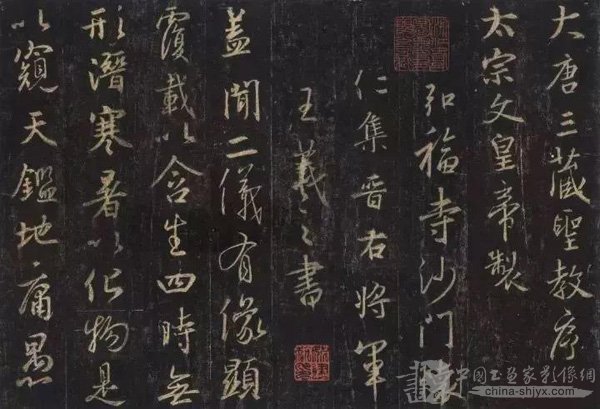 大唐三藏聖教序
太宗文皇帝製
弘福寺沙門
仁集晉右將軍
王羲之書
蓋聞二儀有像顯
覆載以含生四時無
形潛寒暑以化物是
以窺天鑑地庸愚
中国书画家影像網
china-shjyx.com